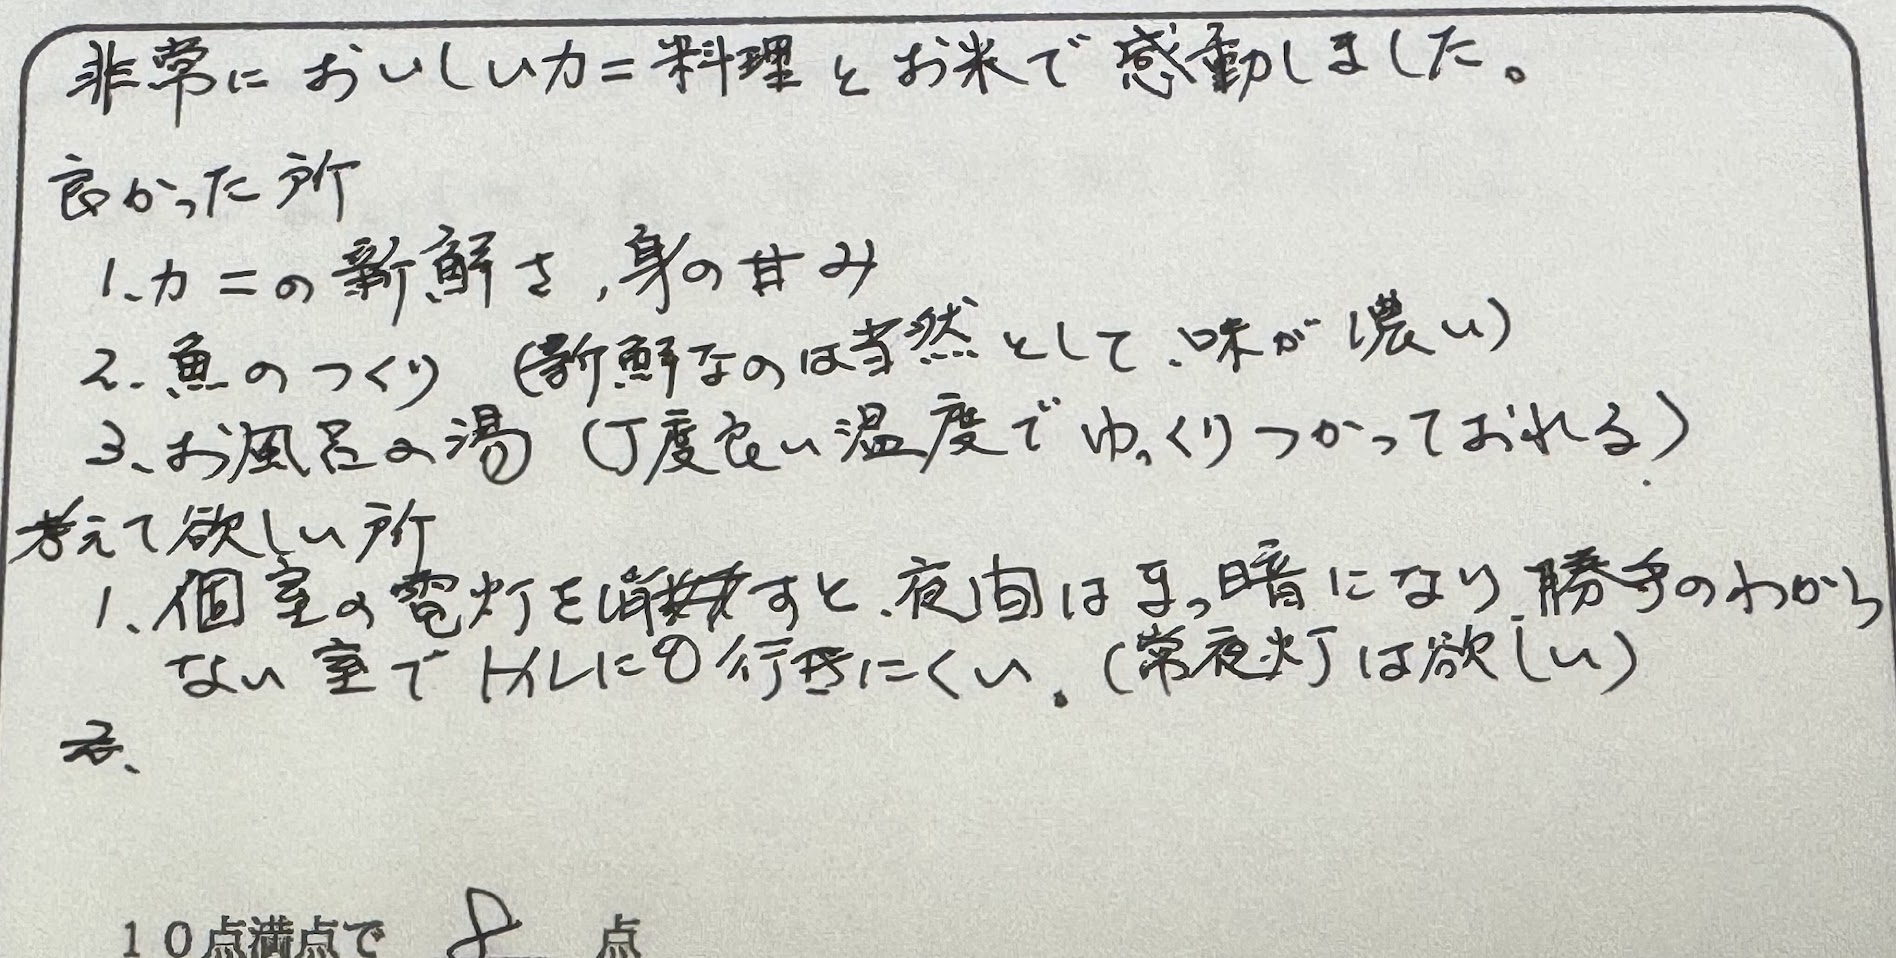 非常においしいカニ料理とお米で感動しました。
良かった所
1、カニの新鮮さ,身の甘み
2、魚のつくり (新鮮なのは当然として、味が濃い)
3、お風呂の湯 (丁度良い温度でゆっくりつかっておれる)
考えて欲しい所
1、個室の電灯を消すと、夜間はまっ暗になり、勝手のわから
ない室でトイレに行きにくい。(常夜灯は欲しい)
10点満点で 8 点